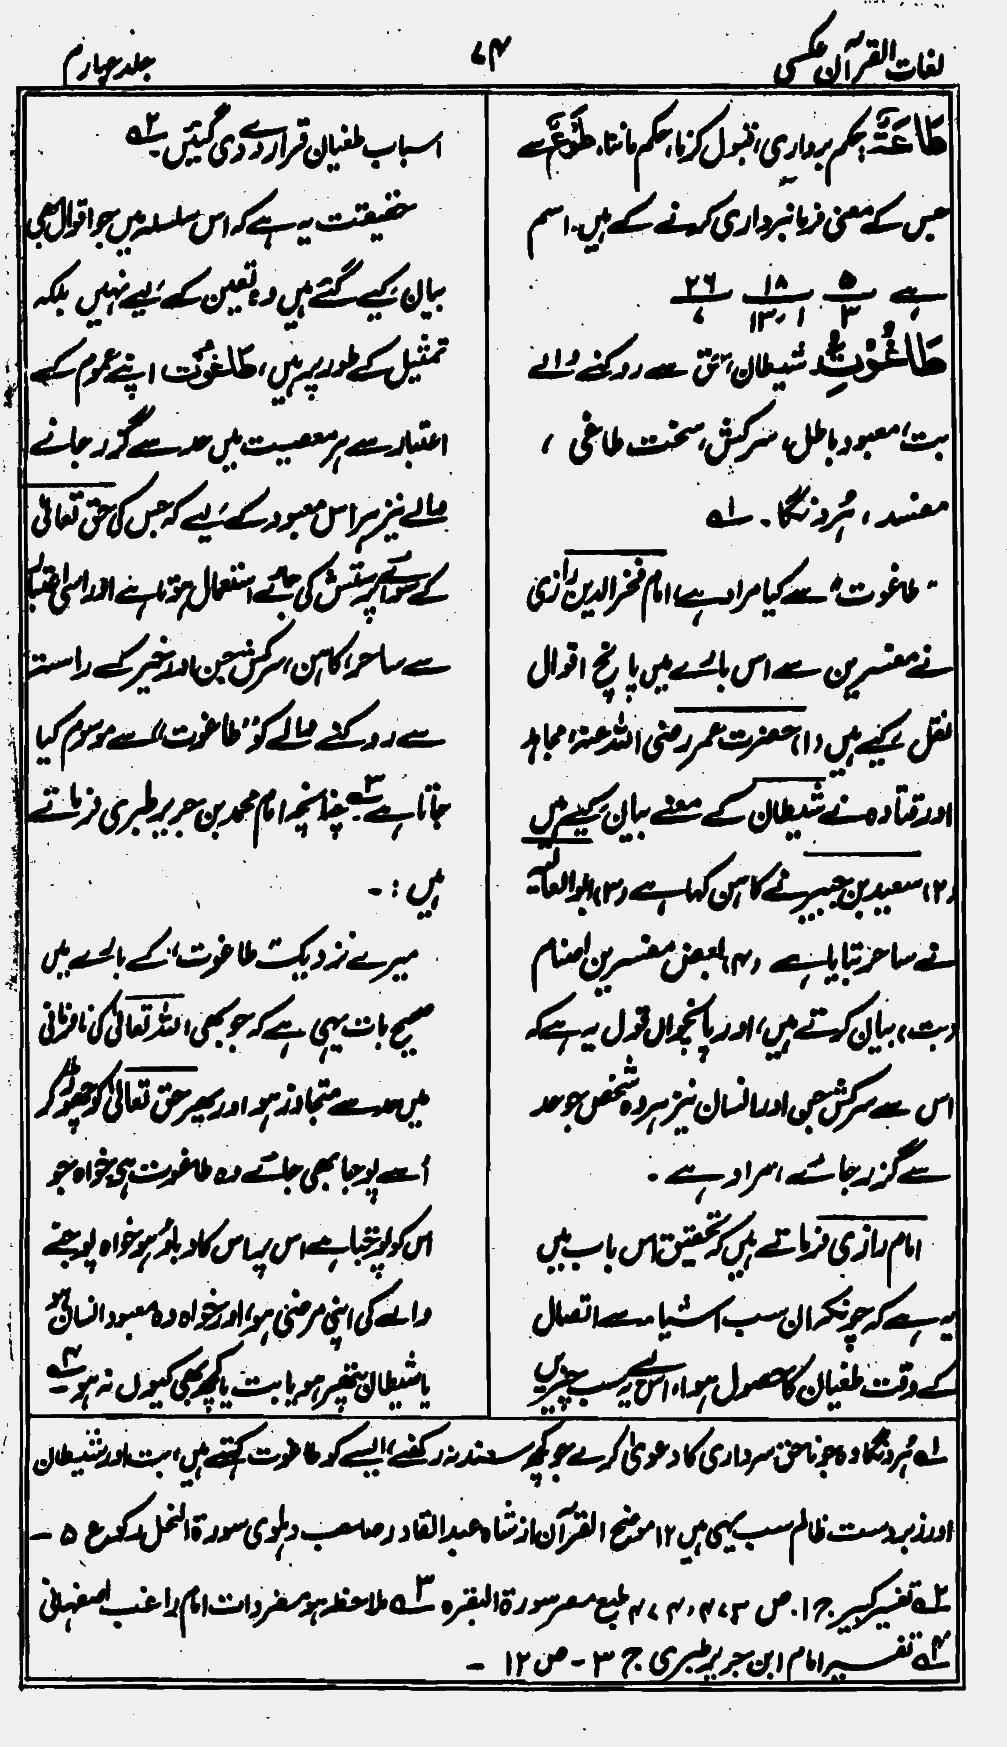 لغات القرآن عکسی
۷۴
جلد چہارم
طَاعَۃٌ: حکم برداری، قبول کرنا، حکم ماننا، طَوْعٌ سے
جس کے معنی فرمانبرداری کرنے کے ہیں۔ اسم
ہے ۵/۳ ۱۸/۱۳،۱ ۲۶/۷
طَاغُوْتُ شیطان، حق سے روکنے والے
بت، معبود باطل، سرکش، سخت طاغی،
مفسد، ہُردنگا۔ ۱؎
"طاغوت" سے کیا مراد ہے، امام فخر الدین رازی
نے مفسرین سے اس بارے میں پانچ اقوال
نقل کیے ہیں (۱) حضرت عمر رضی اللہ عنہ، مجاہد
اور قتادہ نے شیطان کے معنے بیان کیے ہیں
(۲) سعید بن جبیر نے کاہن کہا ہے (۳) ابو العالیہ
نے ساحر بتایا ہے (۴) بعض مفسرین اصنام
(بت) بیان کرتے ہیں، اور پانچواں قول یہ ہے کہ
اس سے سرکش جن اور انسان نیز ہر وہ شخص جو حد
سے گزر جائے، مراد ہے۔
امام رازی فرماتے ہیں کہ تحقیق اس باب میں
یہ ہے کہ چونکہ ان سب اشیاء سے اتصال
کے وقت طغیان کا حصول ہوا، اس لیے یہ سب چیزیں
اسباب طغیان قرار دے دی گئیں ۲؎
حقیقت یہ ہے کہ اس سلسلہ میں جو اقوال بھی
بیان کیے گئے ہیں وہ تعین کے لیے نہیں بلکہ
تمثیل کے طور پر ہیں، طَاغُوْت اپنے عموم کے
اعتبار سے ہر معصیت میں حد سے گزر جانے
والے نیز ہر اس معبود کے لیے کہ جس کی حق تعالیٰ
کے سوائے پرستش کی جائے استعمال ہوتا ہے اور اسی اعتبار
سے ساحر، کاہن، سرکش جن اور خیر کے راستہ
سے روکنے والے کو "طاغوت" سے موسوم کیا
جاتا ہے ۳؎ چنانچہ امام محمد بن جریر طبری فرماتے
ہیں:۔
میرے نزدیک "طاغوت" کے بارے میں
صحیح بات یہی ہے کہ جو بھی اللہ تعالیٰ کی نافرمانی
میں حد سے متجاوز ہو اور پھر حق تعالیٰ کو چھوڑ کر
اُسے پوجا بھی جائے وہ طاغوت ہی، خواہ جو
اس کو پوجتا ہے اس پر اس کا دباؤ ہو خواہ پوجنے
والے کی اپنی مرضی ہو، اور خواہ وہ معبود انسان ہو
یا شیطان پتھر ہو یا بت یا کچھ بھی کیوں نہ ہو ۴؎
۱؎ ہُردنگا وہ جو ناحق سرداری کا دعویٰ کرے جو کچھ سند نہ رکھے، ایسے کو طاغوت کہتے ہیں، بت اور شیطان
اور زبردست ظالم سب یہی ہیں ۱۲ موضح القرآن از شاہ عبد القادر صاحب دہلوی سورۃ النحل رکوع ۵ ۔
۲؎ تفسیر کبیر ج ۱۔ ص ۴۷۳، ۴۷۴ طبع مصر سورۃ البقرہ ۳؎ ملاحظہ ہو مفردات امام راغب اصفہانی
۴؎ تفسیر امام ابن جریر طبری ج ۳ ۔ ص ۱۲ ۔